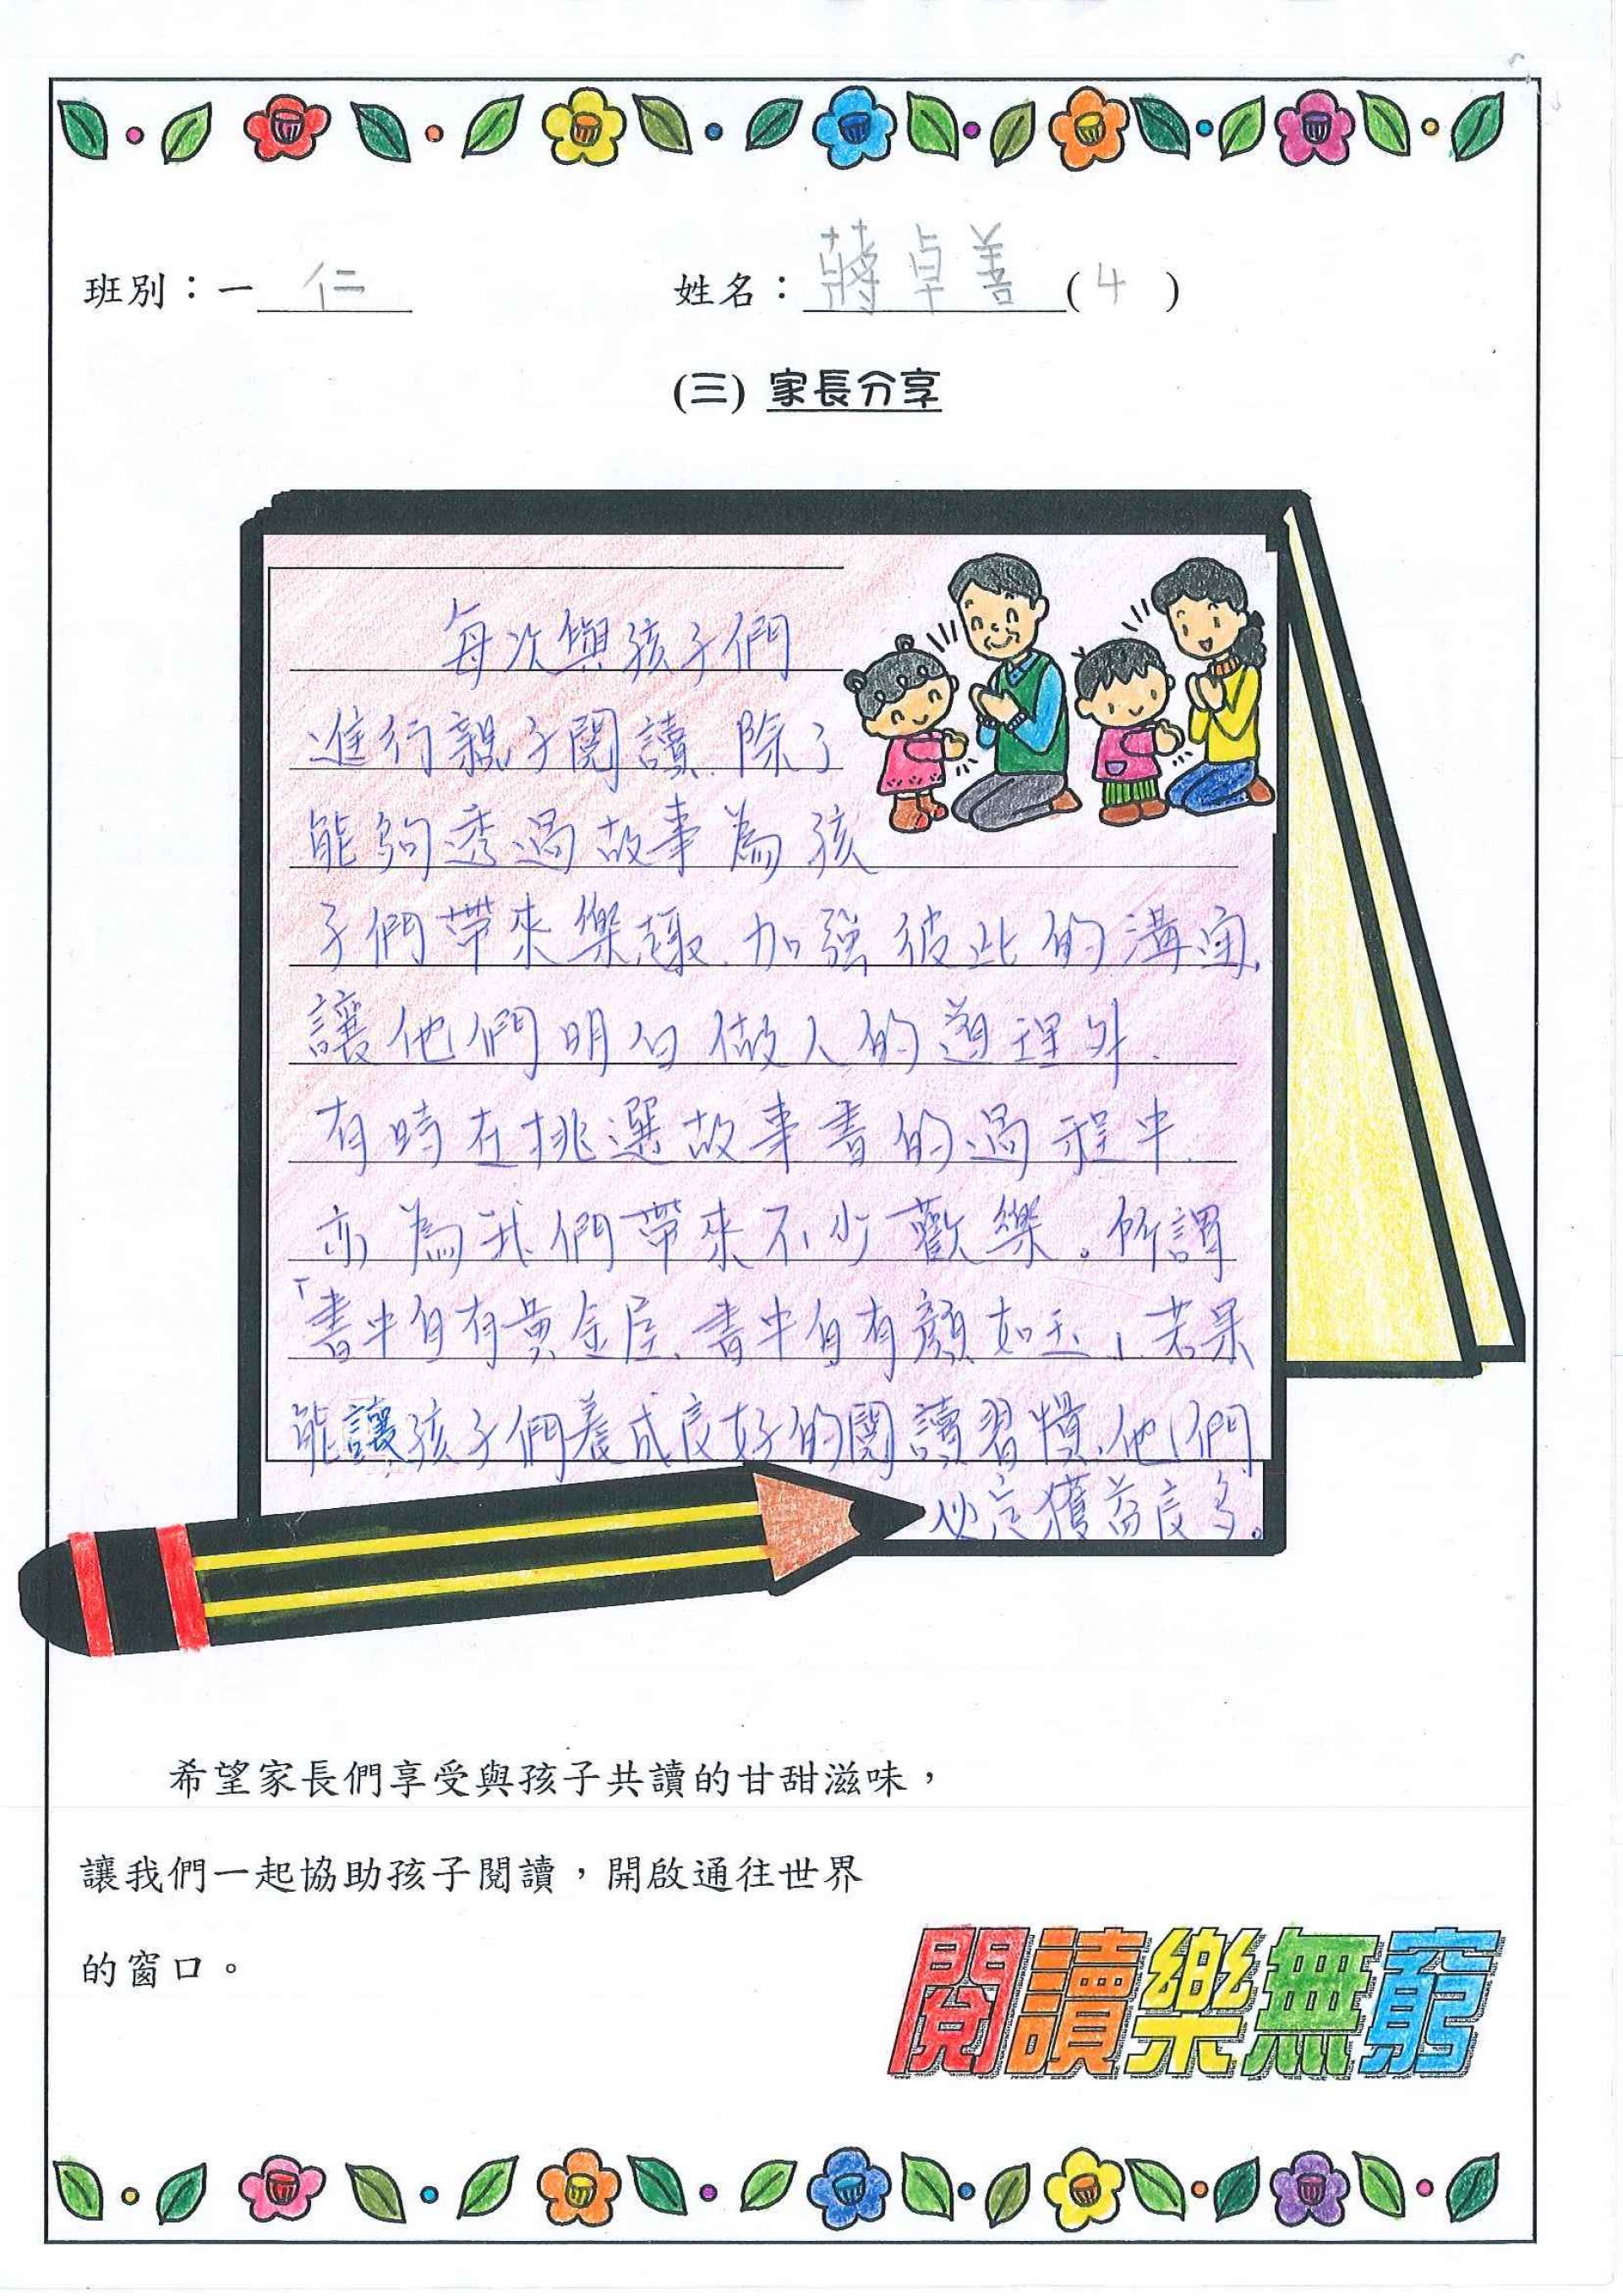 班別：一 仁 姓名：蔣卓善 ( 4 )
(三) 家長分享
每次與孩子們
進行親子閱讀，除了
能夠透過故事為孩
子們帶來樂趣，加強彼此的溝通，
讓他們明白做人的道理外，
有時在挑選故事書的過程中，
亦為我們帶來不少歡樂。所謂
「書中自有黃金屋、書中自有顏如玉」，若果
能讓孩子們養成良好的閱讀習慣，他們
必定獲益良多。
希望家長們享受與孩子共讀的甘甜滋味，
讓我們一起協助孩子閱讀，開啟通往世界
的窗口。
閱讀樂無窮